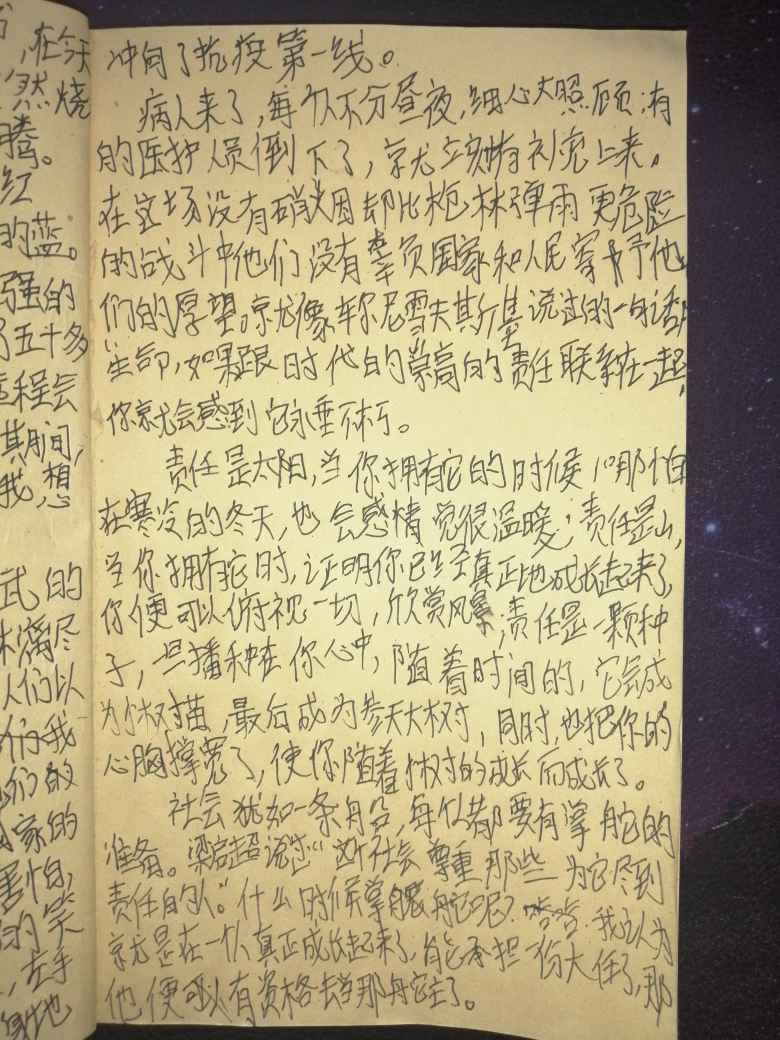 在今天
然烧
腾。
红
的蓝。
强的
了五十多
程会
其期间,
我,想
武的
满尽
人们以
们我
们的
家的
害怕,
的笑
,左手
地
冲向了抗疫第一线。
病人来了,每个人不分昼夜,细心大照顾;有
的医护人员倒下了,就立刻有补充上来。
在这场没有硝烟因却比枪林弹雨更危险
的战斗中他们没有辜负国家和人民寄予他
们的厚望。就像车尔尼雪夫斯基说过的一句话:
生命,如果跟时代的崇高的责任联系在一起,
你就会感到它永垂不朽。
责任是太阳,当你拥有它的时候,那怕
在寒冷的冬天,也会感情觉很温暖;责任是山,
当你拥有它时,证明你已经真正地成长起来了,
你便可以俯视一切,欣赏风景;责任是一颗种
子,一旦播种在你心中,随着时间的,它会成
为小树苗,最后成为参天大树,同时,也把你的
心胸撑宽了,使你随着树的成长而成长了。
社会犹如一条船,每个人都要有掌舵的
准备。梁启超说过“ 社会尊重那些为它尽到
责任的人。”什么时候掌舵呢? 我认为
就是在一个人真正成长起来了,能承担一份大任了,那
他便可以有资格去当那舵主了。